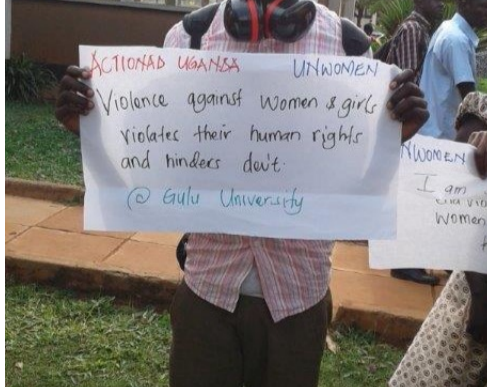 ACTIONAD UGANDA UNWOMEN
Violence against women & girls
violates their human rights
and hinders dev't.
@ Gulu University
NWOMEN
I am
end vio
women